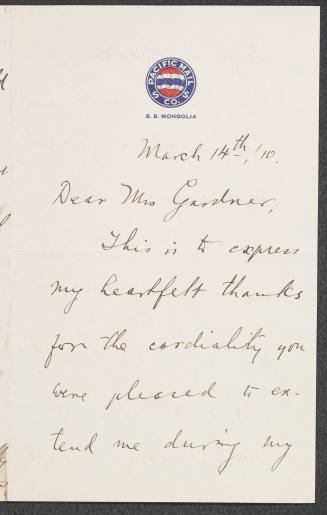 PACIFIC MAIL
S S CO.
S. S. MONGOLIA
March 14th, '10.
Dear Mrs Gardner,
This is to express
my heartfelt thanks
for the cordiality you
were pleased to ex-
tend me during my